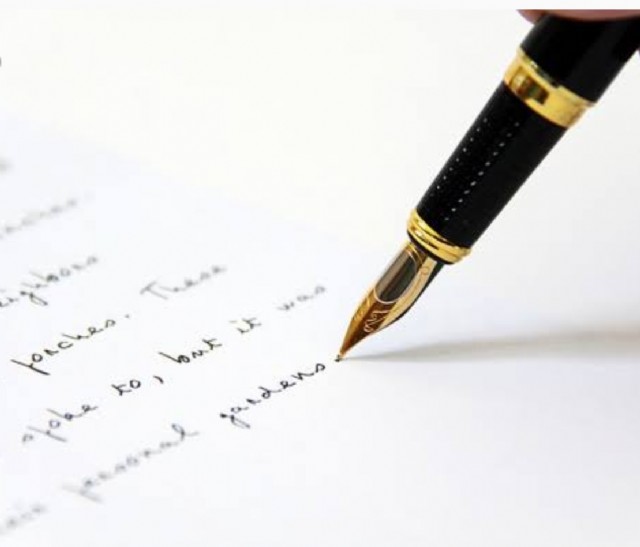 neighbors
porches. These
spoke to, but it was
personal gardens